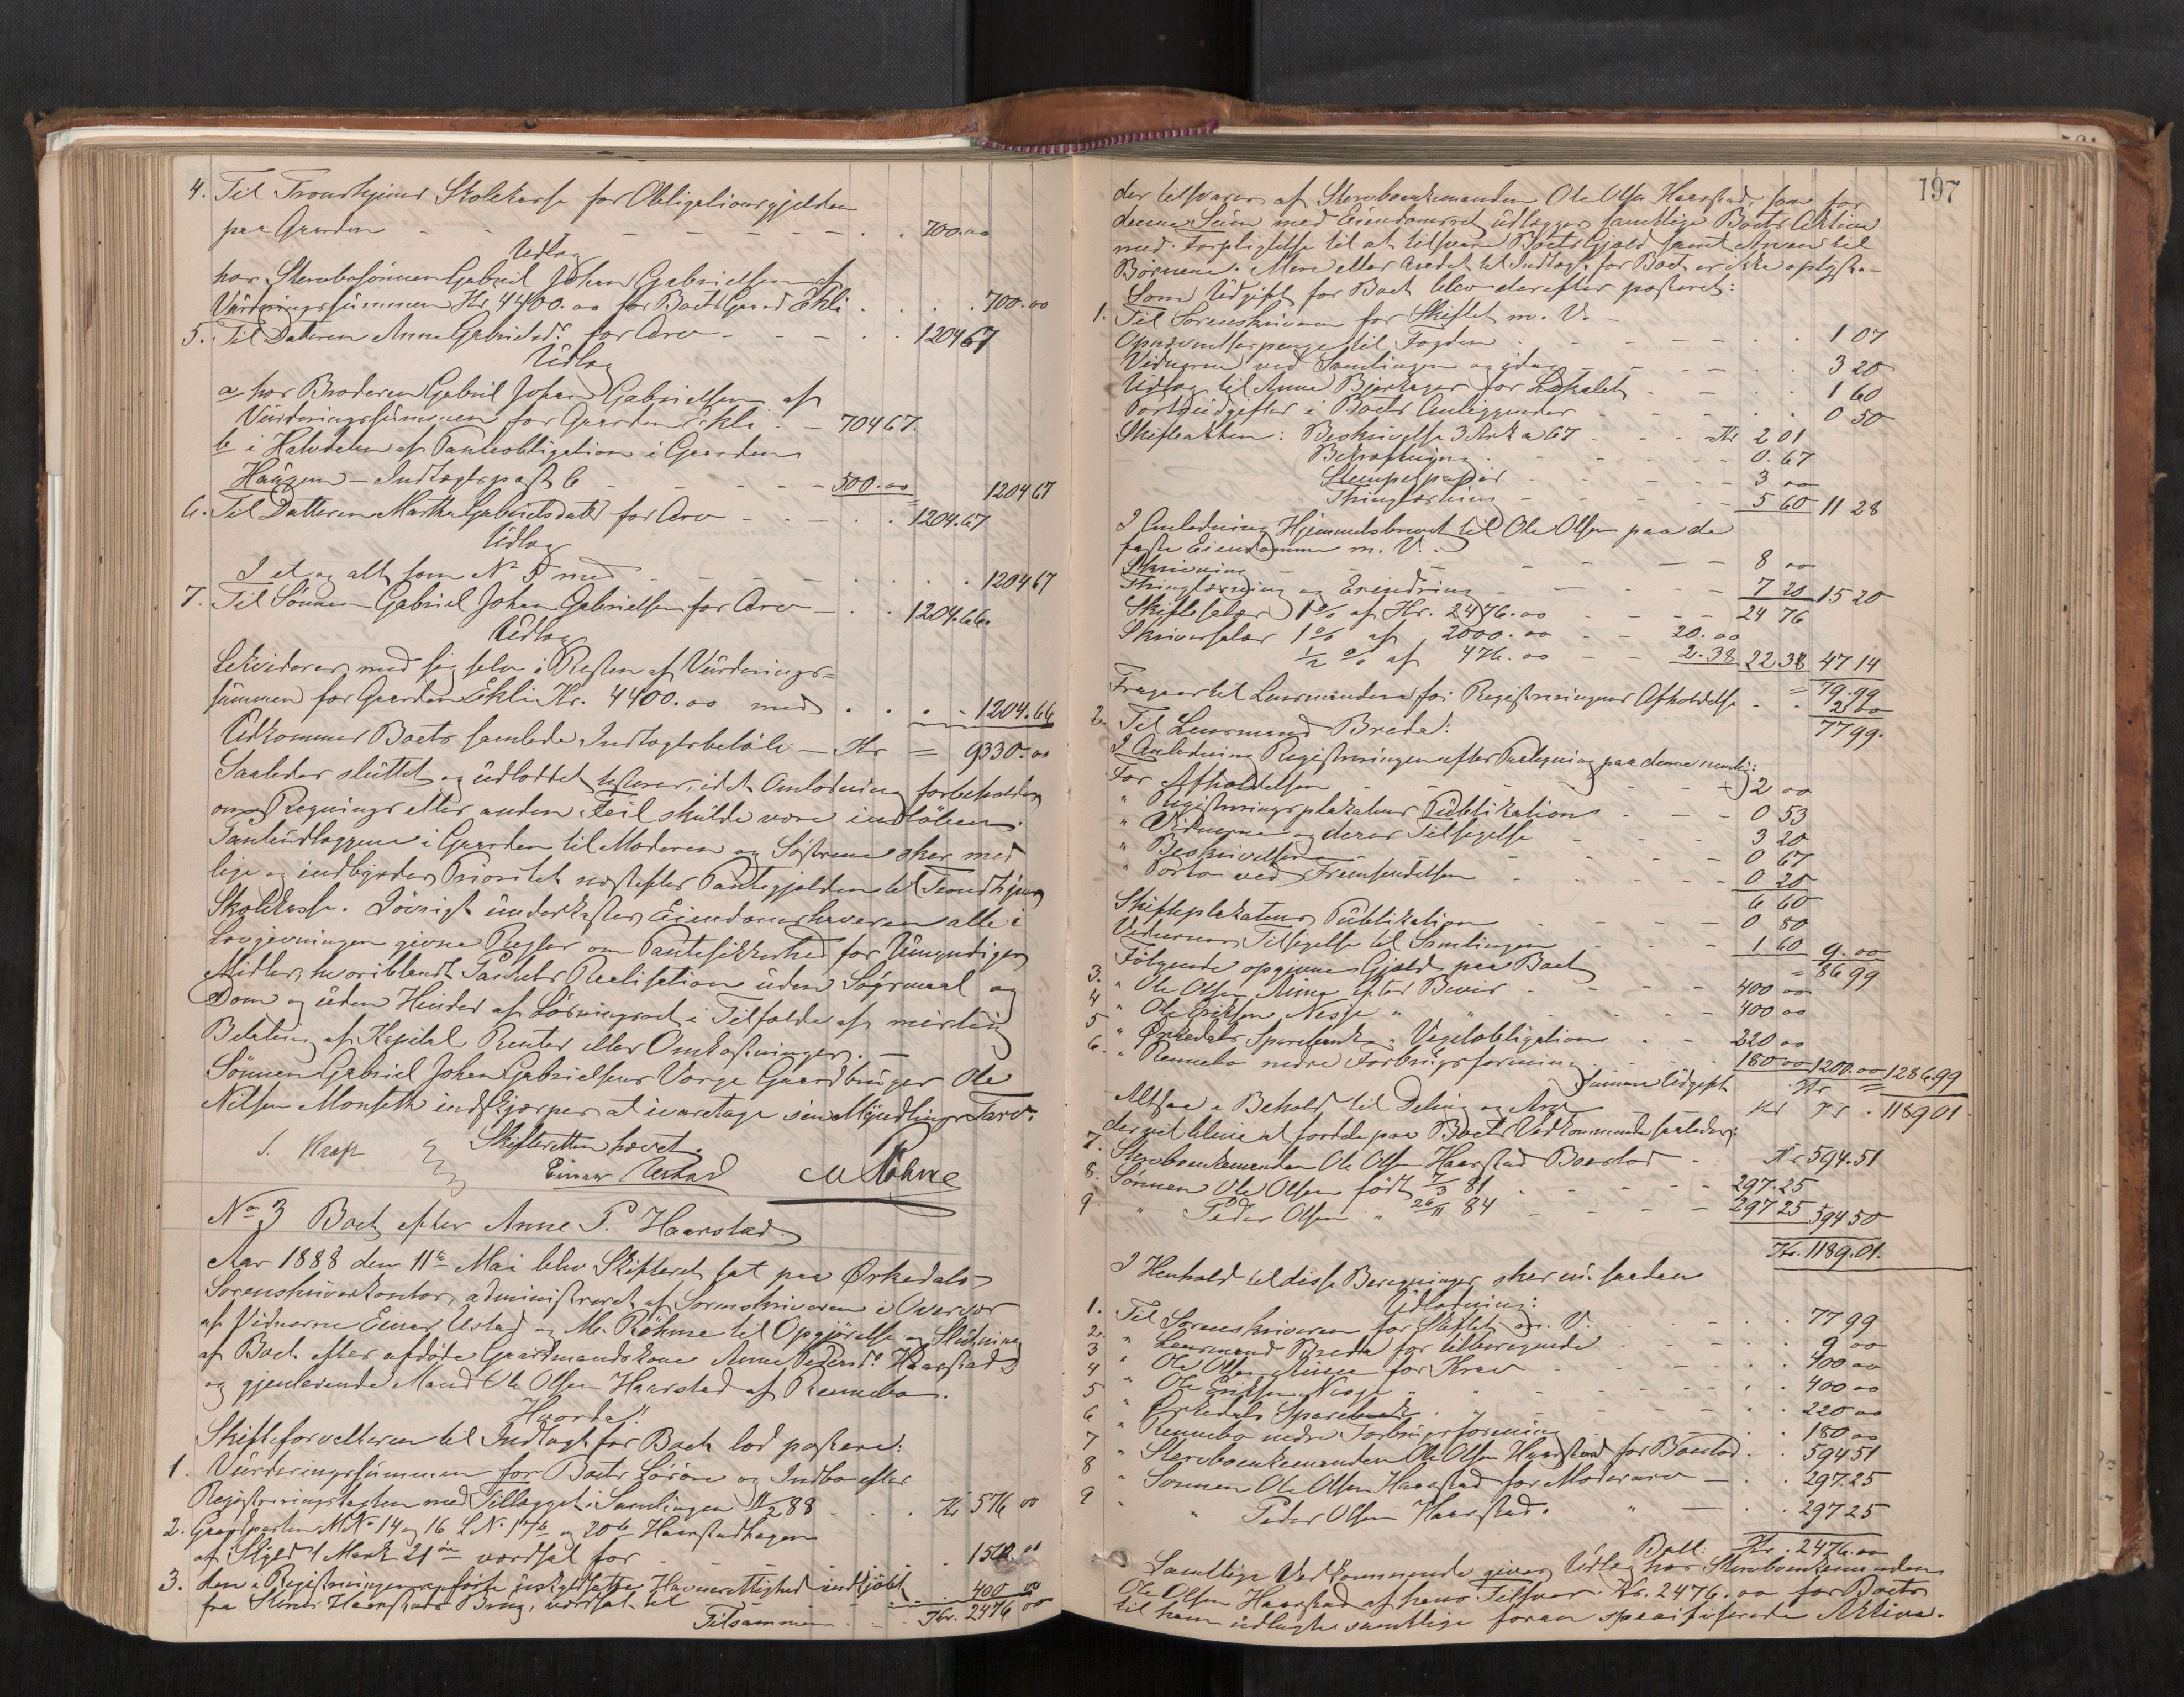 4. Til Trondhjems Skolekasse for Obligationsgjelden
paa Gaarden - - - - - - - . . 700.00
Udlæg
hos Stervbosönnen Gabriel Johan Gabrielsen af
Vürderingssümmen Kr. 4400.00 for Boets Gaard Ekli . . . . 700.00
5. Til Datteren Anne Gabrielsd. for Arv - - - . . 1204 67
Udlæg
a hos Broderen Gabriel Johan Gabrielsen af
Vürderingssümmen for Gaarden Ekli . - 704 67.
b i Halvdelen af Panteobligation i Gaarden
Haugen - Indtægtspost 6 - - - - - 500.00 1204 67
6. Til Datteren Martha Gabrielsdatter for Arv - - - . . 1204.67
Udlæg
I et og alt som No 5 med - - - - - . . . 1204 67
7. Til Sönnen Gabriel Johan Gabrielsen for Arv - . . 1204.66.
Udlæg
Lekviderer med sig selv i Resten af Vürderings-
sümmen for Gaarden Ekli Kr. 4400.00 med . . . - 1204.66
Udkommer Boets samlede Indtægtsbelöb - Kr = 9330.00
Saaledes slüttet og üdloddet, idet Omlodning forbeholdes
om Regnings eller anden Feil skülde være indlöben.
Panteüdlæggene i Gaarden til Moderen og Söstrene sker med
lige og indbyrdes Prioritet næstefter Pantegjelden til Trondhjems
Skolekasse. Iövrigt ünderkastes Eiendomshaveren alle i
Lovgivningen givne Regler om Pantesikkerhed for Umyndiges
Midler, hvoriblandt Pantets Realisation üden Sögsmaal og
Dom og üden Hinder af Lösningsret i Tilfælde af mislig
Betaling af Kapital, Renter eller Omkostninger. -
Sönnen Gabriel Johan Gabrielsens Værge Gaardbrüger Ole
Nilsen Monseth indskjærpes at ivaretage sin Myndlings Tarv.
Skifteretten hævet.
Einar Ustad M Röhme
No 3 Boet efter Anne P. Haarstad.
Aar 1888 den 11te Mai blev Skifteret sat paa Örkedals
Sorenskriverkontor, administreret af Sorenskriveren i Overvær
af Vidnerne Einar Ustad og M. Röhme til Opgjörelse og Slütning
af Boet efter afdöde Gaardmandskone Anne Pedersd. Haarstad
og gjenlevende Mand Ole Olsen Haarstad af Rennebo.
Hvorda!
Skifteforvalteren til Indtægt for Boet lod postere:
1. Vürderingssümmen for Boets Lösöre og Indbo efter
Registreringsakten med Tillægget i Samlingen 11/2 88 . . . Kr 576 00
2. Gaardparten MNo 14 og 16 LNo 17b og 20b Haarstadhagen
af Skyld 1 Mark 21 öre værdsat for - - - - - . . 1500.00
3. den i Registreringen opförte üskyldsatte Havnerettighed indkjöbt
fra Haarstads Brüg, værdsat til - - - - - . . 400 00
Tilsammen . . - Kr. 2476 00
197
der tilsvares af Stervboenkemanden Ole Olsen Haarstad, som for
denne Süm med Eiendomsret üdlægges samtlige Boets Aktiva
med Forpligtelse til at tilsvare Boets Gjæld samt Arven til
Börnene. Mere eller andet til Indtægt for Boet er ikke oplyst. -
Som Udgift for Boet blev derefter posteret:
1. Til Sorenskriveren for Skiftet m. V. -
Opnævnelsespenge til Fogden . - - - - - . . 1 07
Vidnerne ved Samlingen og idag - - - - . . 3 20
Udlæg til Anne Bjerkager for Lokalet - - - . . 1 60
Portoüdgifter i Boets Anliggender - - - - . . 0 50
Skifteakten: Beskrivelse 3 Ark a 67 - . . Kr 2 01
Bekræftelsen . - - - - - 0.67
Stempelpapir . . - - - 3 00
Thinglæsning - - - - 5 60 11 28
I Anledning Hjemmelsbrevet til Ole Olsen paa de
faste Eiendomme m. V. .
Skrivning - - - - - - - 8 00
Thinglæsning og Erindring - - - - 7 20 15 20
Skiftesalær 1% af Kr. 2476.00 - - - 24 76
Skriversalær 1% af 2000.00 - - 20.00
1/2 % af 476.00 - - 2.38 22 38 47 14
= 79.99
Fragaar til Lensmanden for Registreringens Afholdelse . . 2 00
77 99.
2. Til Lensmand Breda:
I Anledning Registreringen efter Paategning paa denne nemlig:
For Afholdelsen - - - - - - 2 00
" Registreringsplakatens Püblikation - - - 0 53
" Vidnerne og deres Tilsigelse - - - - 3 20
" Beskrivelsen - - - - - - 0 67
" Porto ved Fremsendelsen - - - - 0 20
6 60
Skifteplakatens Püblikation - - - - 0 80
Vidnernes Tilsigelse til Samlingen - - - 1 60 9.00
= 86 99
Fölgende opgivne Gjæld paa Boet
3. " Ole Olsen Aune efter Bevis - - - - 400 00
4 " Ole Eriksen Nesse " " - - - - 400 00
5 " Örkedals Sparebank " Vexelobligation . - 220 00
6. " Rennebo nedre Forbrügsforening - - 180 00 1200.00 1286.99
Sümma Udgift Kr =
Altsaa i Behold til Deling og Arv Kr Kr . 1189 01
der vil blive at fordele paa Boets Vedkommende saaledes:
7. Stervboenkemanden Ole Olsen Haarstad Boeslod . Kr 594.51
8. Sönnen Ole Olsen född 7/3 81 - - - - 297.25
9. " Peder Olsen " 26/11 84 - - - - 297 25 594 50
Kr. 1189.01.
I Henhold til disse Beregninger sker nü saadan
Udlodning:
1. Til Sorenskriveren for Skiftet m. V. . . . . . 77 99
2. " Lensmand Breda for tilberegnede - - - - . 9 00
3 " Ole Olsen Aune for Krav - - - - . . 400 00
4 " Ole Eriksen Nesse " " - - - - . . 400 00
5 " Örkedals Sparebank " " - - - - . . 220 00
6 " Rennebo nedre Forbrügsforening . . . 180 00
7 " Stervboenkemanden Ole Olsen Haarstad for Boeslod . . 594 51
8 " Sönnen Ole Olsen Haarstad for Mödrearv - . . 297.25
9 " " Peder Olsen Haarstad. " - . . 297 25
Ball. Kr. 2476.00
Samtlige Vedkommende gives Udlæg hos Stervboenkemanden
Ole Olsen Haarstad af hans Tilsvar Kr. 2476.00 for Boets
til ham üdlagte samtlige foran specificerede Aktiva.